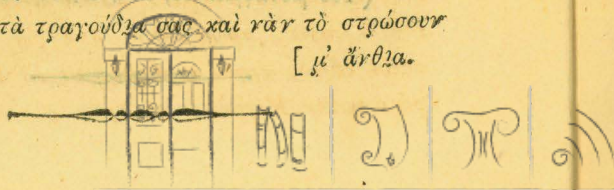 τὰ τραγούδια σας καὶ νὰν τὸ στρώσουν
[μ' ἄνθια.